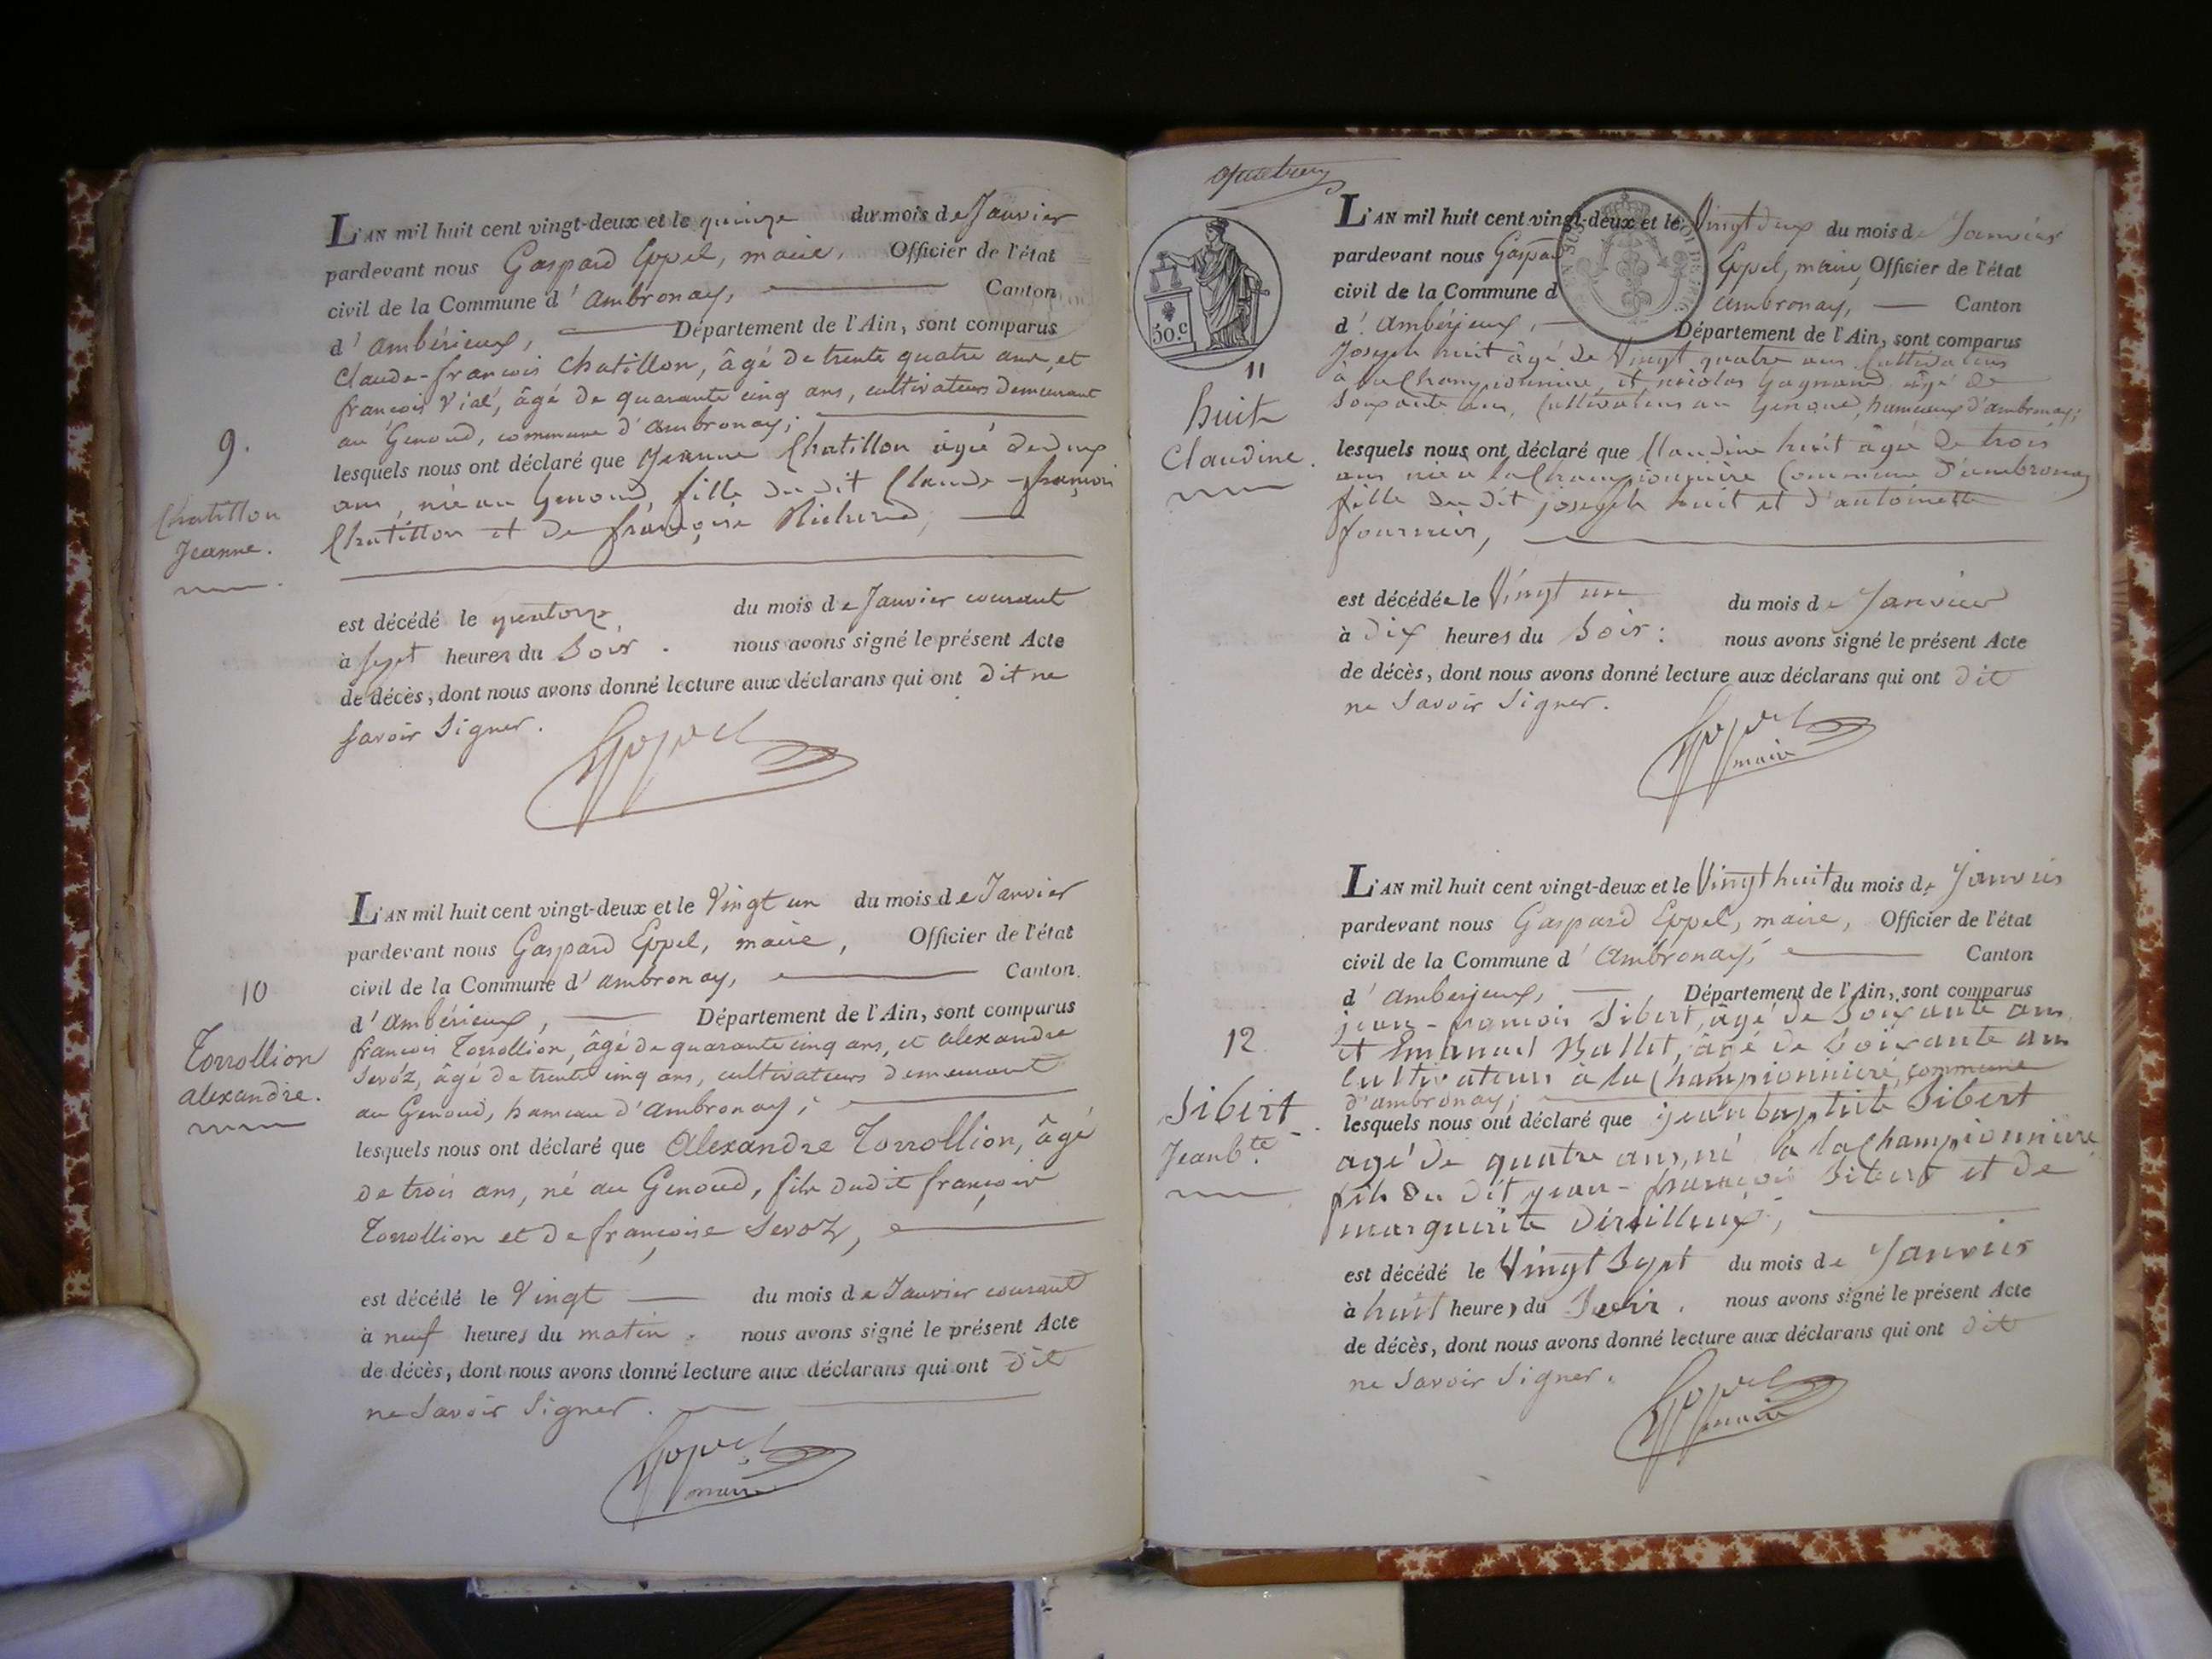 L'AN mil huit cent vingt-deux et le quinze du mois de Janvier
pardevant nous Gaspard Eppel, maire, Officier de l'état
civil de la Commune d'ambronay, Canton
d'ambérieux, Département de l'Ain, sont comparus
Claude-françois Chatillon, âgé de trente quatre ans, et
françois Vial, âgé de quarante cinq ans, cultivateurs demeurant
au Genoud, commune d'ambronay;
9.
lesquels nous ont déclaré que Jeanne Chatillon agée de deux
ans, née au Genoud, fille du dit Claude-françois
Chatillon
Jeanne.
Chatillon et de françoise Richerd,
est décédé le quatorze du mois de Janvier courant
à sept heures du Soir. nous avons signé le présent Acte
de décès, dont nous avons donné lecture aux déclarans qui ont dit ne
savoir signer.
Eppel
L'AN mil huit cent vingt-deux et le Vingt un du mois de Janvier
pardevant nous Gaspard Eppel, maire, Officier de l'état
10
civil de la Commune d'ambronay, Canton.
d'ambérieux, Département de l'Ain, sont comparus
Torrollion
alexandre.
françois Torrollion, âgé de quarante cinq ans, et alexandre
Sevoz, âgé de trente cinq ans, cultivateurs demeurant
au Genoud, hameau d'ambronay;
lesquels nous ont déclaré que Alexandre Torrollion, âgé
de trois ans, né au Genoud, fils dudit françois
Torrollion et de françoise Sevoz,
est décédé le Vingt du mois de Janvier courant
à neuf heures du matin. nous avons signé le présent Acte
de décès, dont nous avons donné lecture aux déclarans qui ont dit
ne savoir signer.
Eppel
maire
L'AN mil huit cent vingt-deux et le Vingt deux du mois de Janvier
pardevant nous Gaspard Eppel, maire, Officier de l'état
civil de la Commune d ambronay, Canton
50.c
d'ambérieux, Département de l'Ain, sont comparus
11
Joseph huit âgé de Vingt quatre ans Cultivateur
à la Championniere, et nicolas Gagnard âgé de
Soixante ans, Cultivateur au Genoud, hameaux d'ambronay;
huit
Claudine.
lesquels nous ont déclaré que Claudine huit âgée de trois
ans née a la Championnière Commune d'ambronay
fille du dit joseph huit et d'antoinette
fournier,
est décédée le Vingt un du mois de Janvier
à dix heures du Soir: nous avons signé le présent Acte
de décès, dont nous avons donné lecture aux déclarans qui ont dit
ne savoir signer.
Eppel
maire
L'AN mil huit cent vingt-deux et le Vingt huit du mois de Janvier
pardevant nous Gaspard Eppel, maire, Officier de l'état
civil de la Commune d'ambronay, Canton
d'amberieux, Département de l'Ain, sont comparus
12
jean-francois Sibert, âgé de Soixante ans
et Emanuel Ballet, âgé de Soixante ans
Cultivateurs à la Championniere, commune
d'ambronay;
Sibert
Jean bte.
lesquels nous ont déclaré que jean baptiste Sibert
agé de quatre ans, né a la Championniere
fils du dit jean-françois Sibert et de
marguerite
est décédé le Vingt Sept du mois de Janvier
à huit heures du Soir. nous avons signé le présent Acte
de décès, dont nous avons donné lecture aux déclarans qui ont dit
ne savoir signer.
Eppel
maire